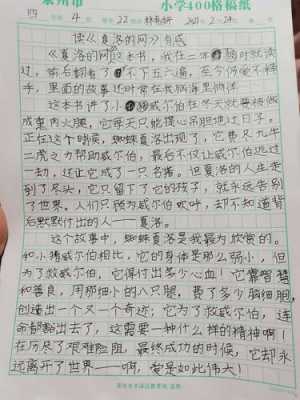 泉州市 小学400格稿纸
四 4 22 2021 2 24
读《夏洛的网》有感
《夏洛的网》这本书，我在二年级时就读
过，前后翻看了不下五六遍，至今仍爱不释
手，里面的故事还时常在我脑海里徘徊。
这本书讲了小猪威尔伯在冬天就要被做
成熏肉火腿，它每天只能提心吊胆地过日子。
正在这个时候，蜘蛛夏洛出现了，它费尽九牛
二虎之力帮助威尔伯，最后不仅让威尔伯逃过
一劫，还让它成了一只名猪。但夏洛的人生走
到了尽头，它只留下了它的孩子，就永远告别
了世界。人们只顾为威尔伯欢呼，却不知道背
后默默付出的人——夏洛。
这个故事中，蜘蛛夏洛是我最为欣赏的。
和小猪威尔伯相比，它的身体是那么弱小，但
为了救威尔伯，它得付出多少心血！它靠智慧
和善良，用那细小的八只腿，费了多少脑细胞，
创造出一个又一个奇迹；它为了救威尔伯，连
命都豁出去了，这需要一种什么样的精神啊！
在历尽了艰难险阻，最终成功的时候，它却永
远离开了世界——啊，它是如此伟大！